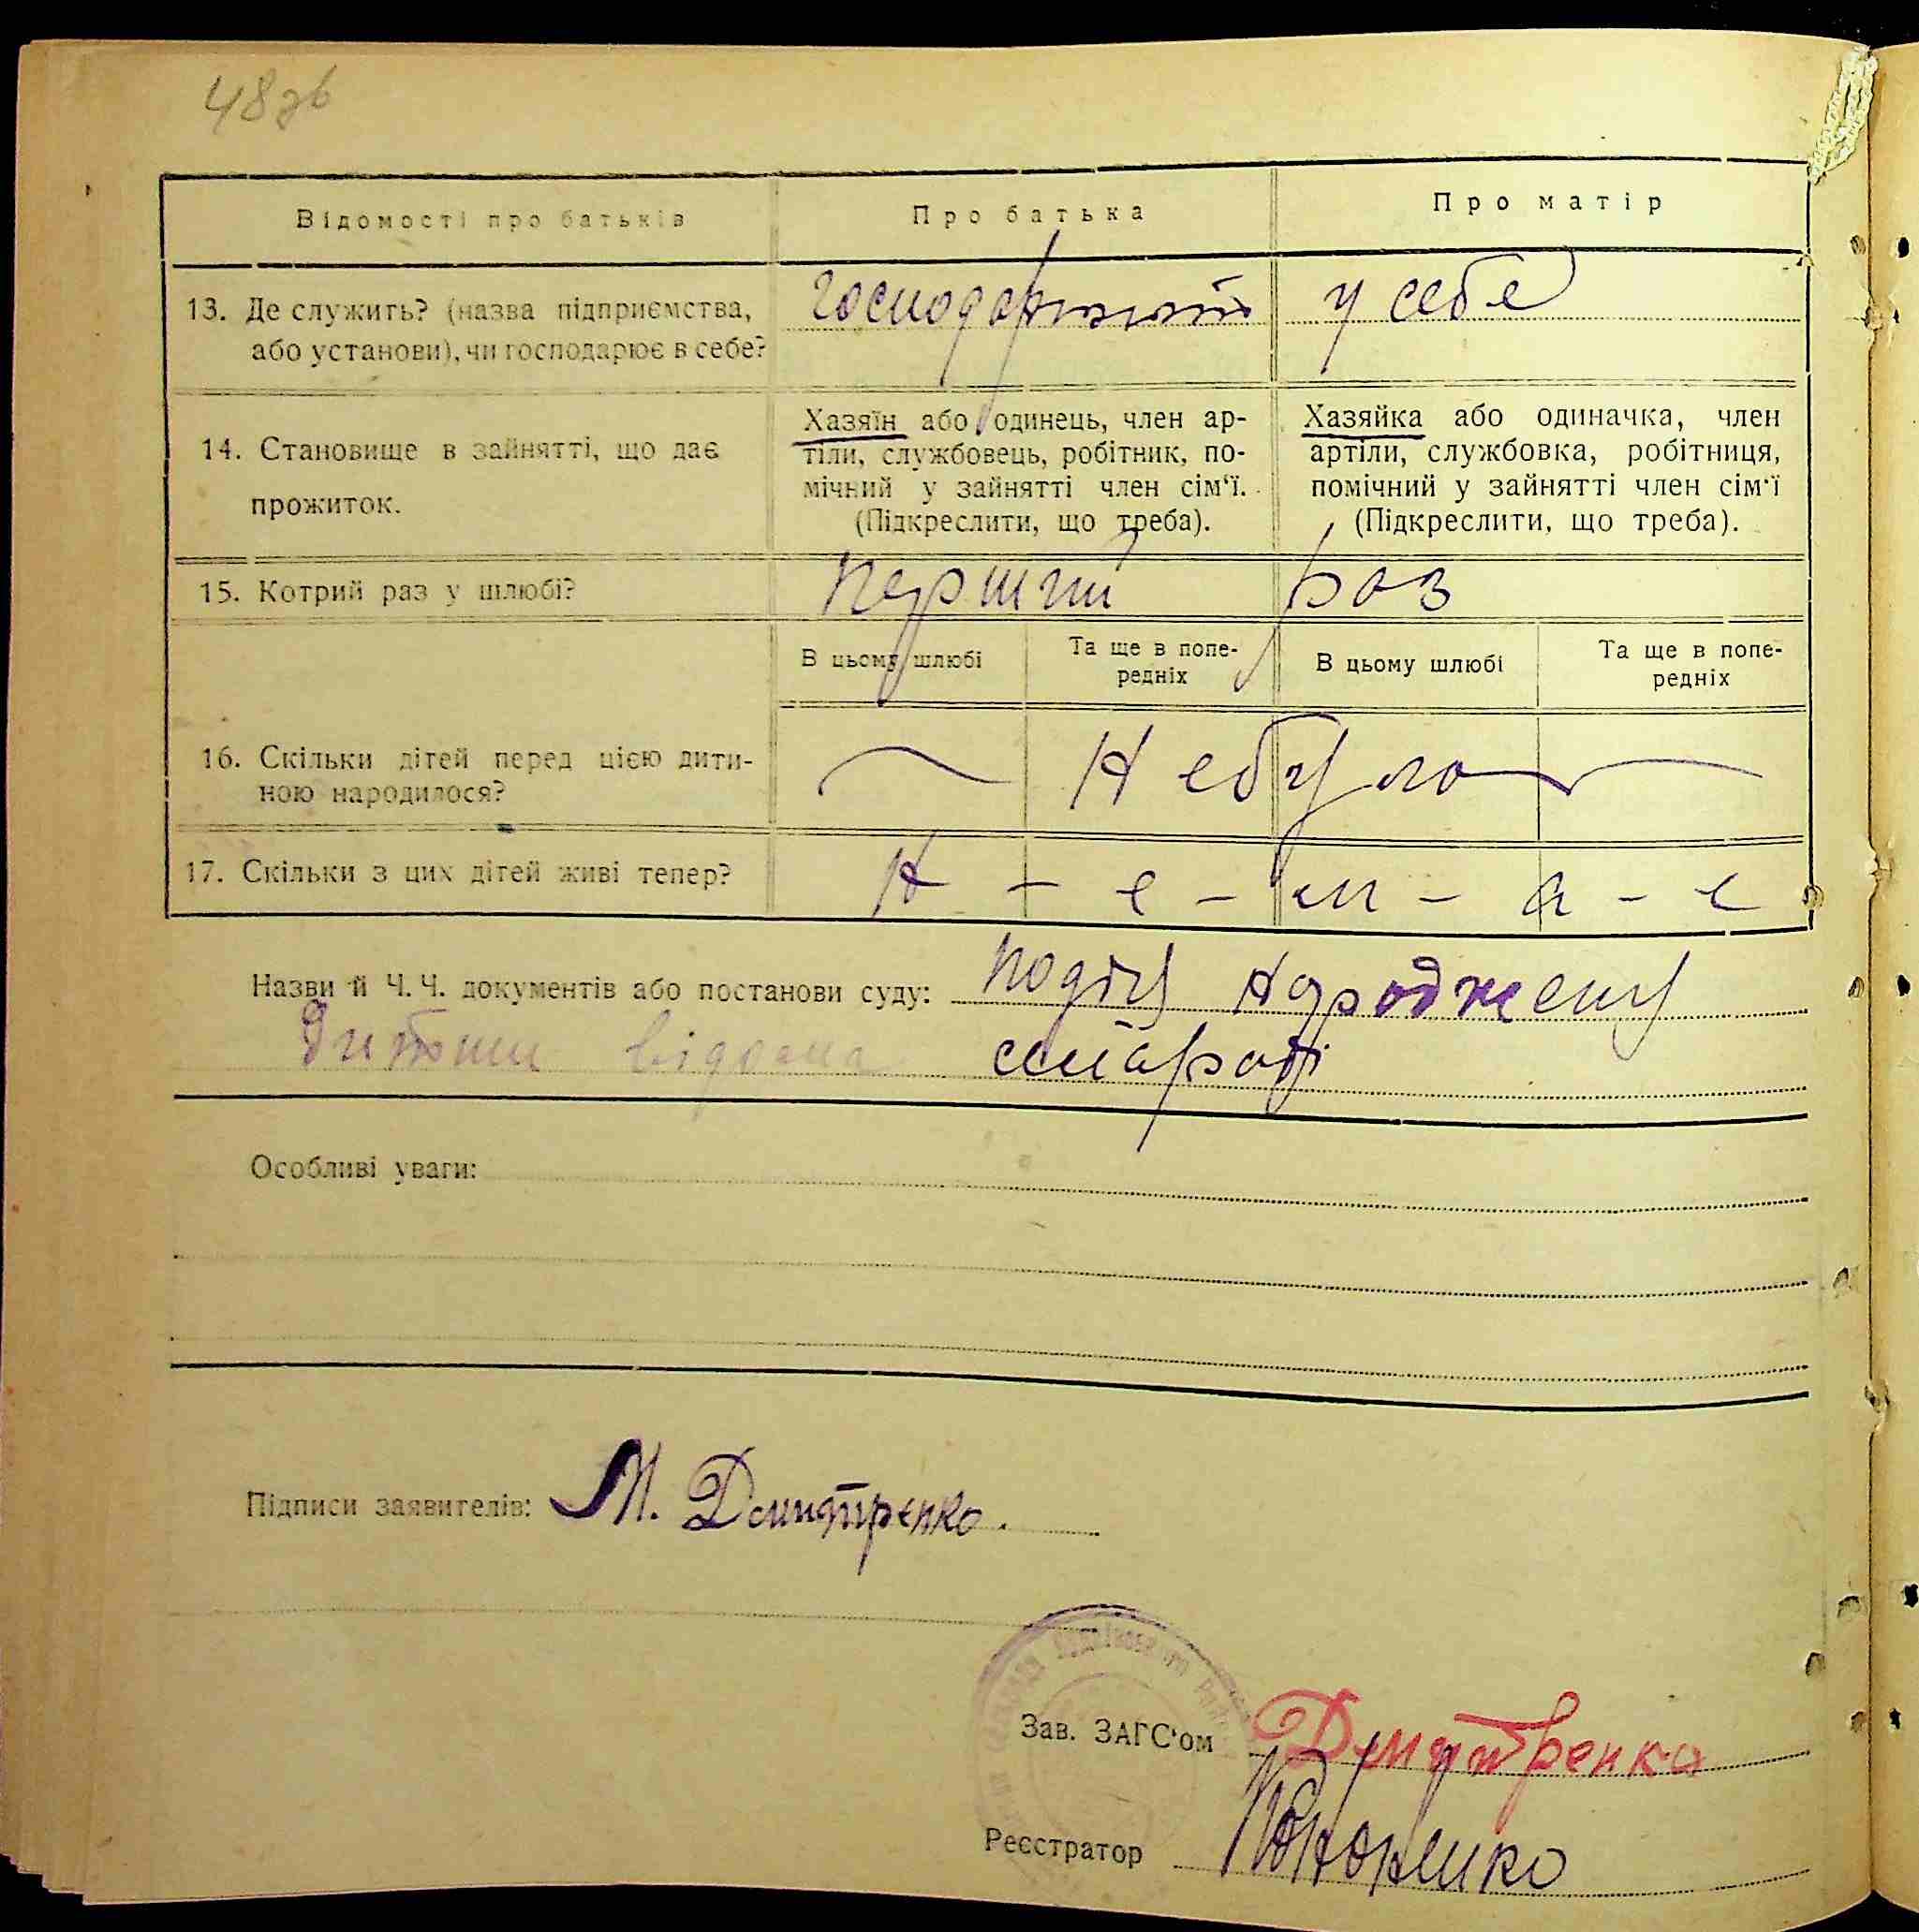 48зв
Відомості про батьків Про батька Про матір
13. Де служить? (назва підприємства, або установи), чи господарює в себе? у себе
14. Становище в зайнятті, що дає прожиток.
Хазяїн або одинець, член ар-
тіли, службовець, робітник, по-
мічний у зайнятті член сім'ї.
(Підкреслити, що треба).
Хазяйка або одиначка, член
артіли, службовка, робітниця,
помічний у зайнятті член сім'ї
(Підкреслити, що треба).
15. Котрий раз у шлюбі? перший раз
В цьому шлюбі Та ще в попе-
редніх В цьому шлюбі Та ще в попе-
редніх
16. Скільки дітей перед цією дити-
ною народилося? Небуло
17. Скільки з цих дітей живі тепер? н - е - м - а - є
Назви й Ч.Ч. документів або постанови суду: подію народження
дитини відома сільраді
Особливі уваги:
Підписи заявителів: М. Дмитренко.
Зав. ЗАГС'ом Дмитренко
Реєстратор